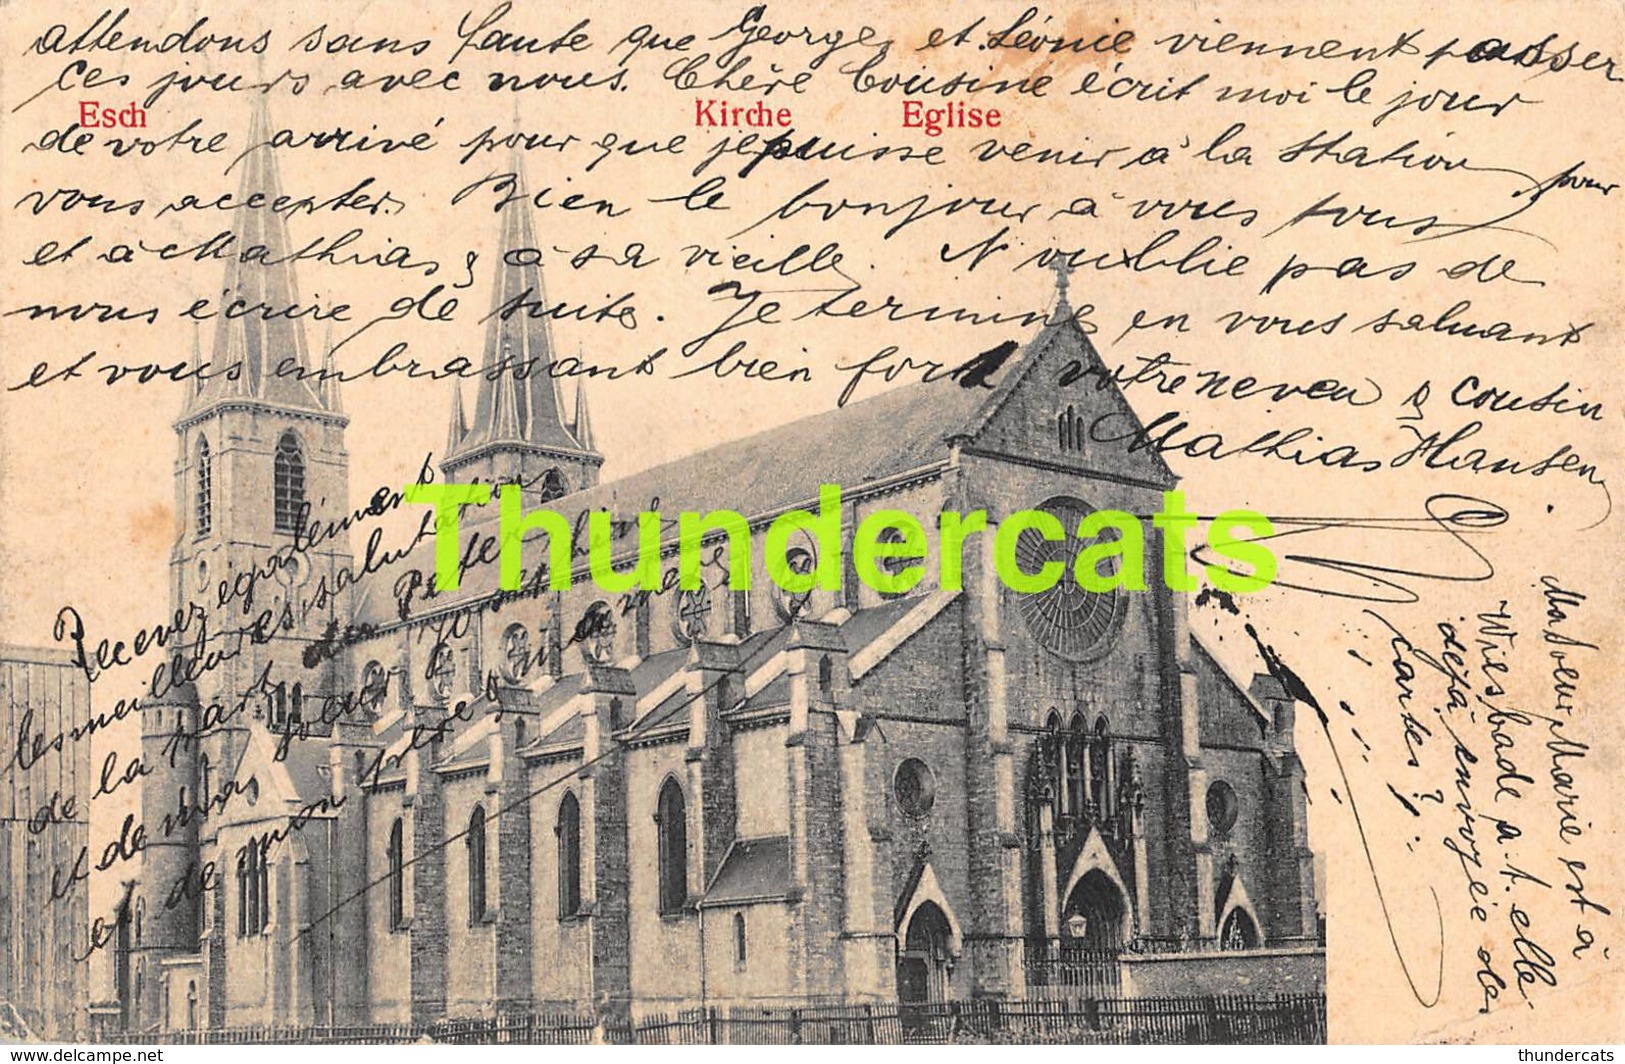 attendons sans faute que George et Léonie viennent passer
ces jours avec nous. Chère Cousine écrit moi le jour
Esch Kirche Eglise
de votre arrivé pour que je puisse venir à la station pour
vous accepter. Bien le bonjour à vous tous
et à Mathias & à sa vieille. N'oublie pas de
nous écrire de suite. Je termine en vous saluant
et vous embrassant bien fort votre neveu & cousin
Mathias Hansen.
Recevez également
les meilleures salutations
de la part Peter
et de ma soeur
et de mon père & ma mère
Thundercats
Ma soeur Marie est à
Wiesbade a t. elle
déjà envoyée des
cartes?
delcampe.net
thundercats